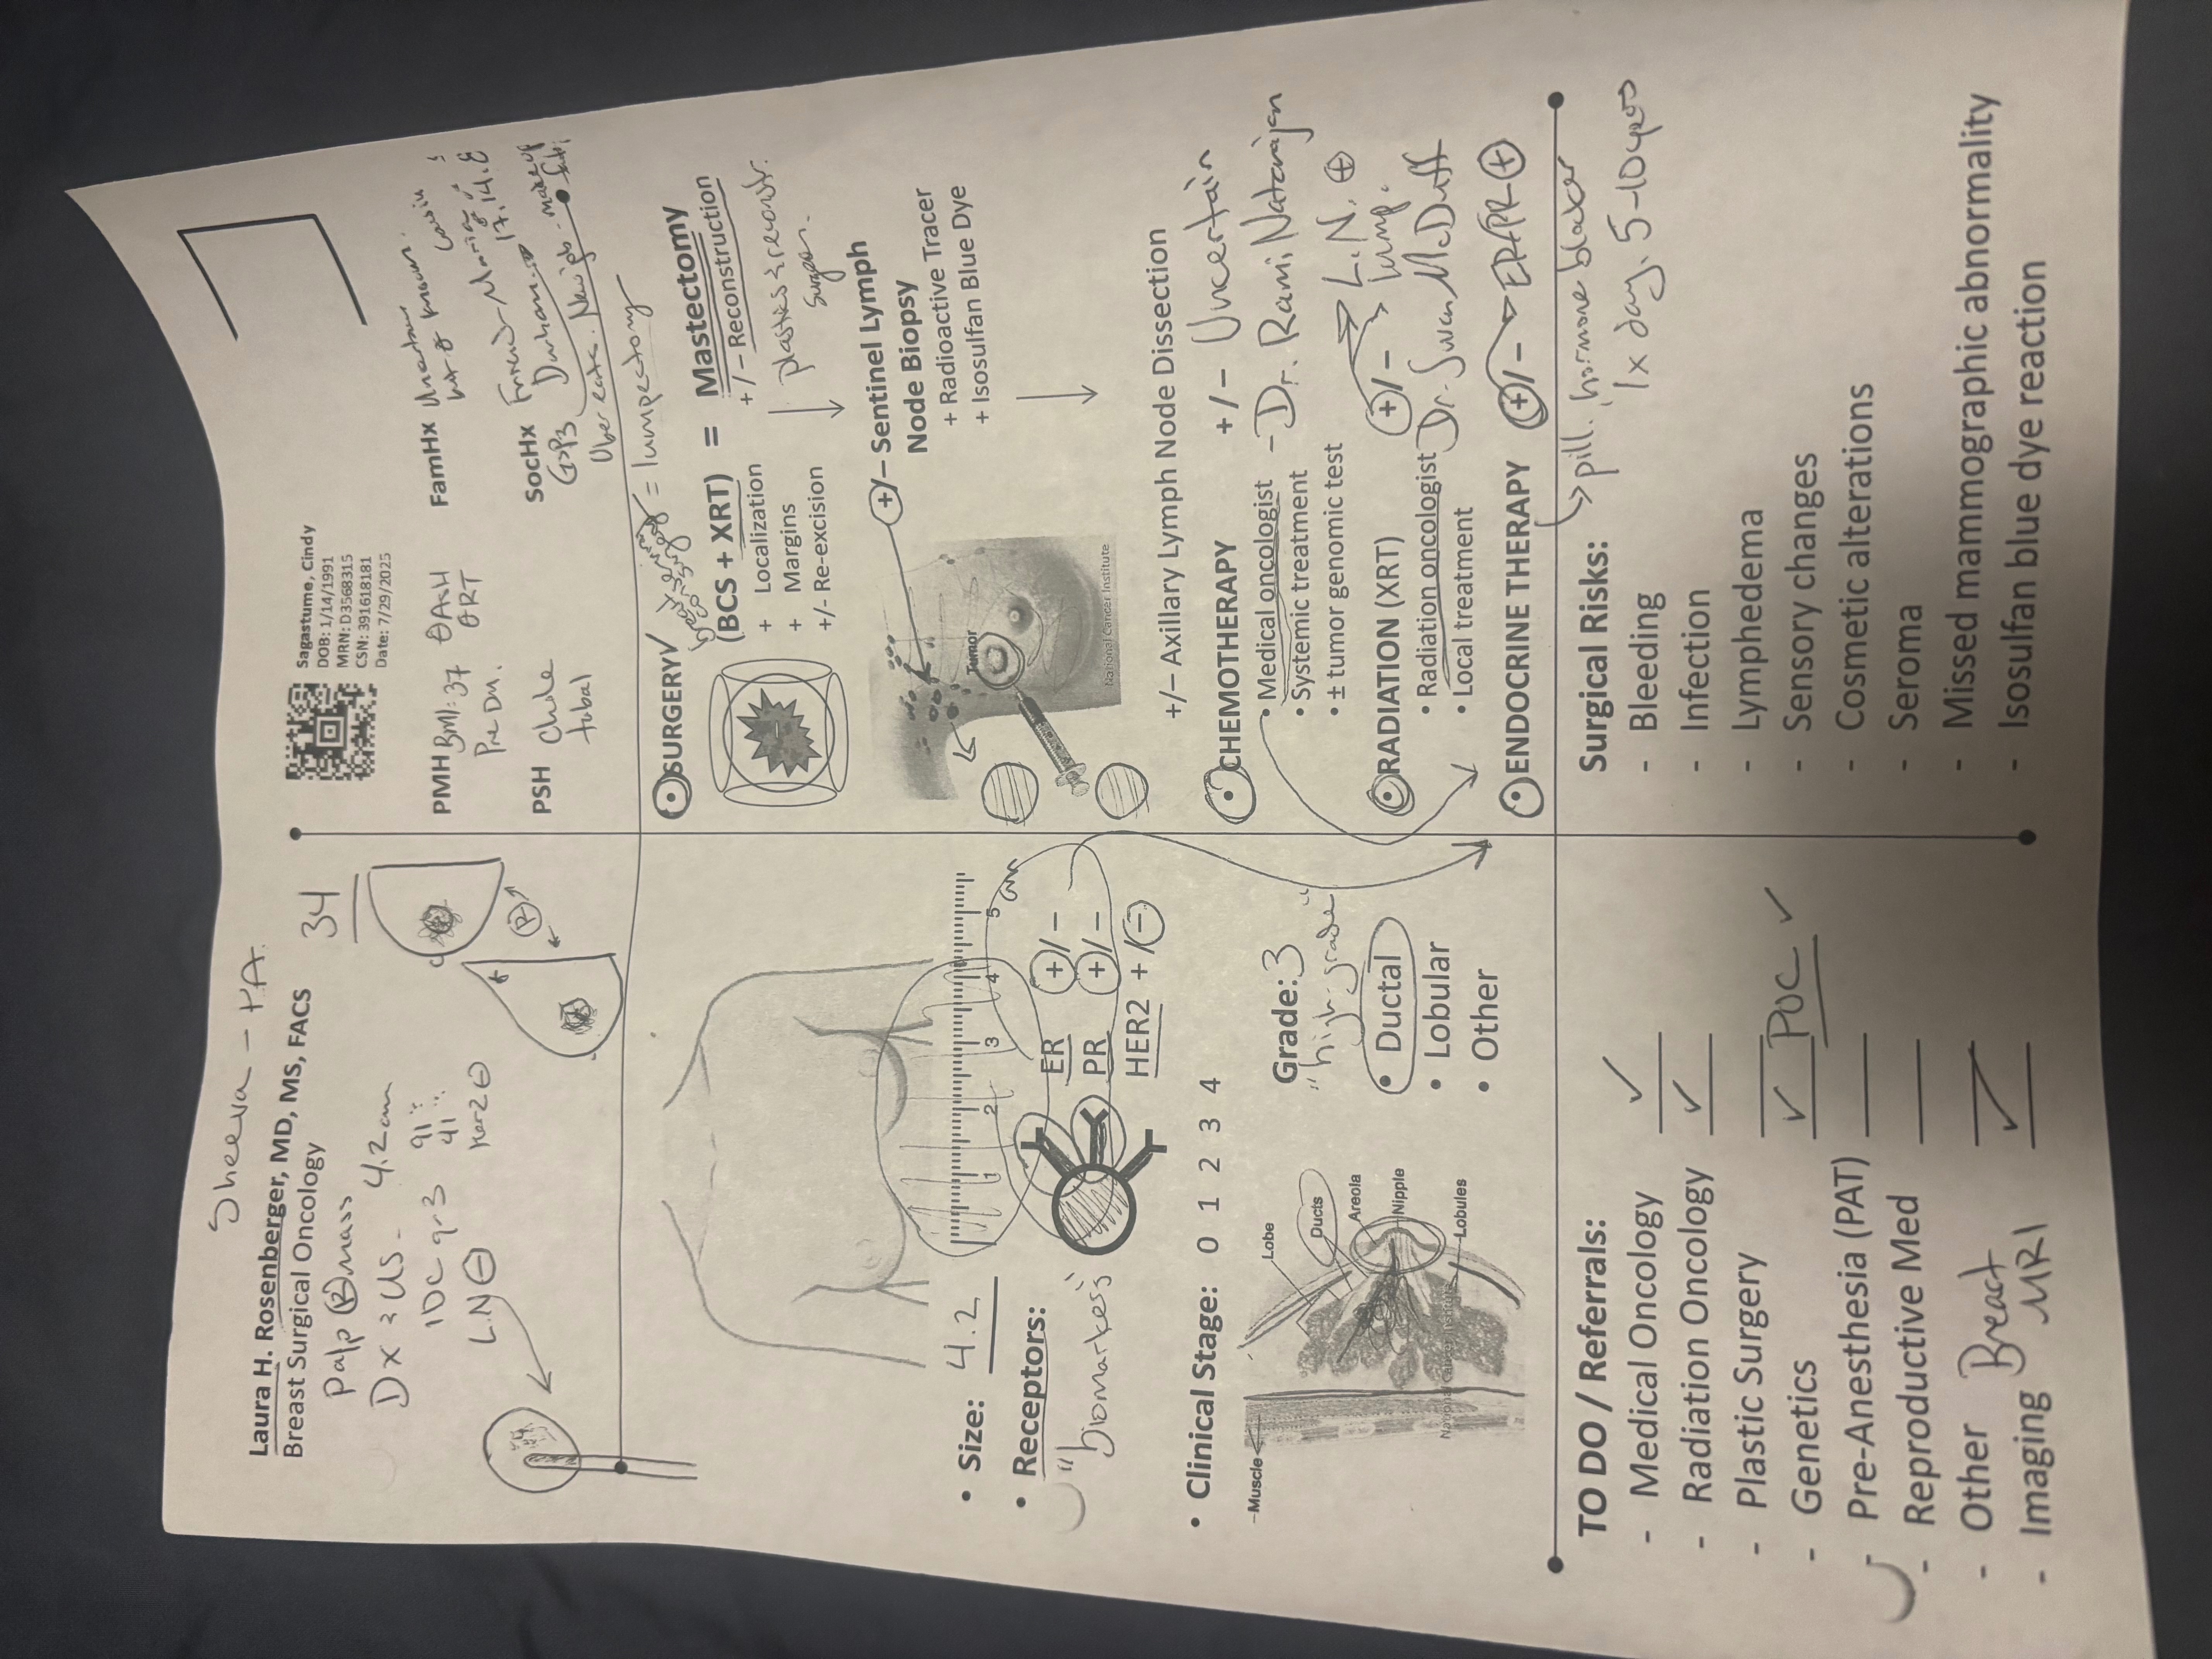 Sheeva - PA
Laura H. Rosenberger, MD, MS, FACS
Breast Surgical Oncology
34
palp R mass
Dx US - 4.2cm
IDC gr 3 91%
41%
L.N ⊖ Her2 ⊖
R
Sagastume, Cindy
DOB: 1/14/1991
MRN: D3568315
CSN: 391618181
Date: 7/29/2025
PMH BMI: 37
Pre DM.
PSH Chole
tubal
FamHx
SocHx
G3P3 Durham
Uber eats.
• Size: 4.2
1 2 3 4 5 cm
• Receptors:
"biomarkers"
ER +/−
PR +/−
HER2 +/−
• Clinical Stage: 0 1 2 3 4
Grade: 3
"high-grade"
• Ductal
• Lobular
• Other
Lobe
Ducts
Areola
Nipple
Lobules
Muscle
SURGERY ✓
= lumpectomy
(BCS + XRT) = Mastectomy
+ Localization
+ Margins
+/- Re-excision
+/− Reconstruction
plastic & reconstr.
surgeon.
+/− Sentinel Lymph
Node Biopsy
+ Radioactive Tracer
+ Isosulfan Blue Dye
Tumor
National Cancer Institute
+/− Axillary Lymph Node Dissection
CHEMOTHERAPY +/− Uncertain
• Medical oncologist - Dr. Rami Natarajan
• Systemic treatment
• ± tumor genomic test
RADIATION (XRT) +/− L.N. ⊕
lump.
• Radiation oncologist Dr. Susan McDuff
• Local treatment
ENDOCRINE THERAPY +/− ER/PR ⊕
pill. hormone blocker
1x day. 5-10 years
TO DO / Referrals:
- Medical Oncology ✓
- Radiation Oncology ✓
- Plastic Surgery
- Genetics ✓ POC ✓
- Pre-Anesthesia (PAT)
- Reproductive Med
- Other Breast
- Imaging MRI ✓
Surgical Risks:
- Bleeding
- Infection
- Lymphedema
- Sensory changes
- Cosmetic alterations
- Seroma
- Missed mammographic abnormality
- Isosulfan blue dye reaction